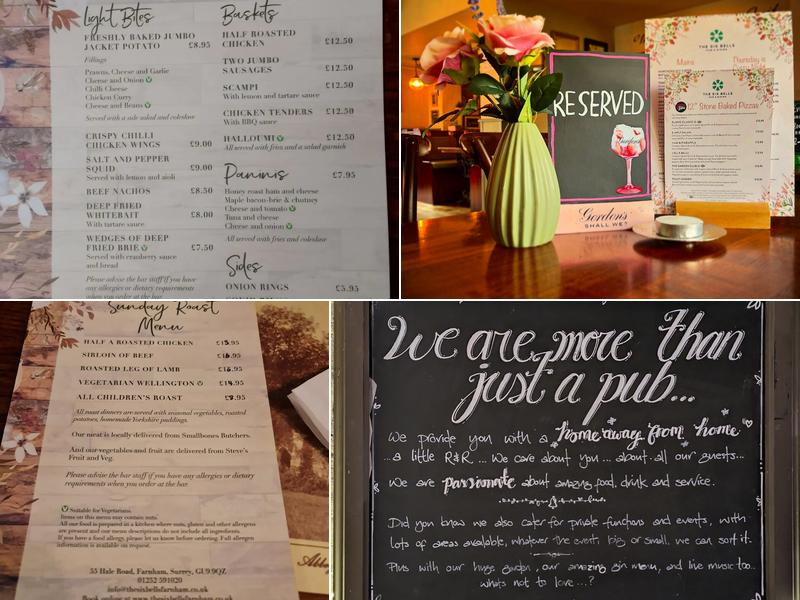 Light Bites
FRESHLY BAKED JUMBO
JACKET POTATO £8.95
Fillings
Prawns, Cheese and Garlic
Cheese and Onion
Chilli Cheese
Chicken Curry
Cheese and Beans
Served with a side salad and coleslaw
CRISPY CHILLI
CHICKEN WINGS £9.00
SALT AND PEPPER
SQUID £9.00
Served with lemon and aioli
BEEF NACHOS £8.50
DEEP FRIED
WHITEBAIT £8.00
With tartare sauce
WEDGES OF DEEP
FRIED BRIE £7.50
Served with cranberry sauce
and bread
Please advise the bar staff if you have
any allergies or dietary requirements
when you order at the bar
Baskets
HALF ROASTED
CHICKEN £12.50
TWO JUMBO
SAUSAGES £12.50
SCAMPI £12.50
With lemon and tartare sauce
CHICKEN TENDERS £12.50
With BBQ sauce
HALLOUMI £12.50
All served with fries and a salad garnish
Paninis £7.95
Honey roast ham and cheese
Maple bacon-brie & chutney
Cheese and tomato
Tuna and cheese
Cheese and onion
All served with fries and coleslaw
Sides
ONION RINGS £5.95
RESERVED
Gordon's
SHALL WE?
THE SIX BELLS
Mains
Thursday is
THE SIX BELLS
12" Stone Baked Pizzas
Sunday Roast
Menu
HALF A ROASTED CHICKEN
SIRLOIN OF BEEF
ROASTED LEG OF LAMB
VEGETARIAN WELLINGTON
ALL CHILDREN'S ROAST
All roast dinners are served with seasonal vegetables, roasted
potatoes, homemade Yorkshire puddings.
Our meat is locally delivered from Smallbones Butchers.
And our vegetables and fruit are delivered from Steve's
Fruit and Veg.
Please advise the bar staff if you have any allergies or dietary
requirements when you order at the bar.
Suitable for Vegetarians.
Items on this menu may contain nuts.
All our food is prepared in a kitchen where nuts, gluten and other allergens
are present and our menu descriptions do not include all ingredients.
If you have a food allergy, please let us know before ordering. Full allergen
information is available on request.
55 Hale Road, Farnham, Surrey, GU9 9QZ
01252 591020
info@thesixbellsfarnham.co.uk
Book online at www.thesixbellsfarnham.co.uk
We are more than
just a pub...
We provide you with a "home away from home"
...a little R&R... We care about you... about all our guests...
We are passionate about amazing food, drink and service.
Did you know we also cater for private functions and events, with
lots of areas available, whatever the event, big or small, we can sort it.
Plus with our huge garden, our amazing gin menu, and live music too..
whats not to love...?